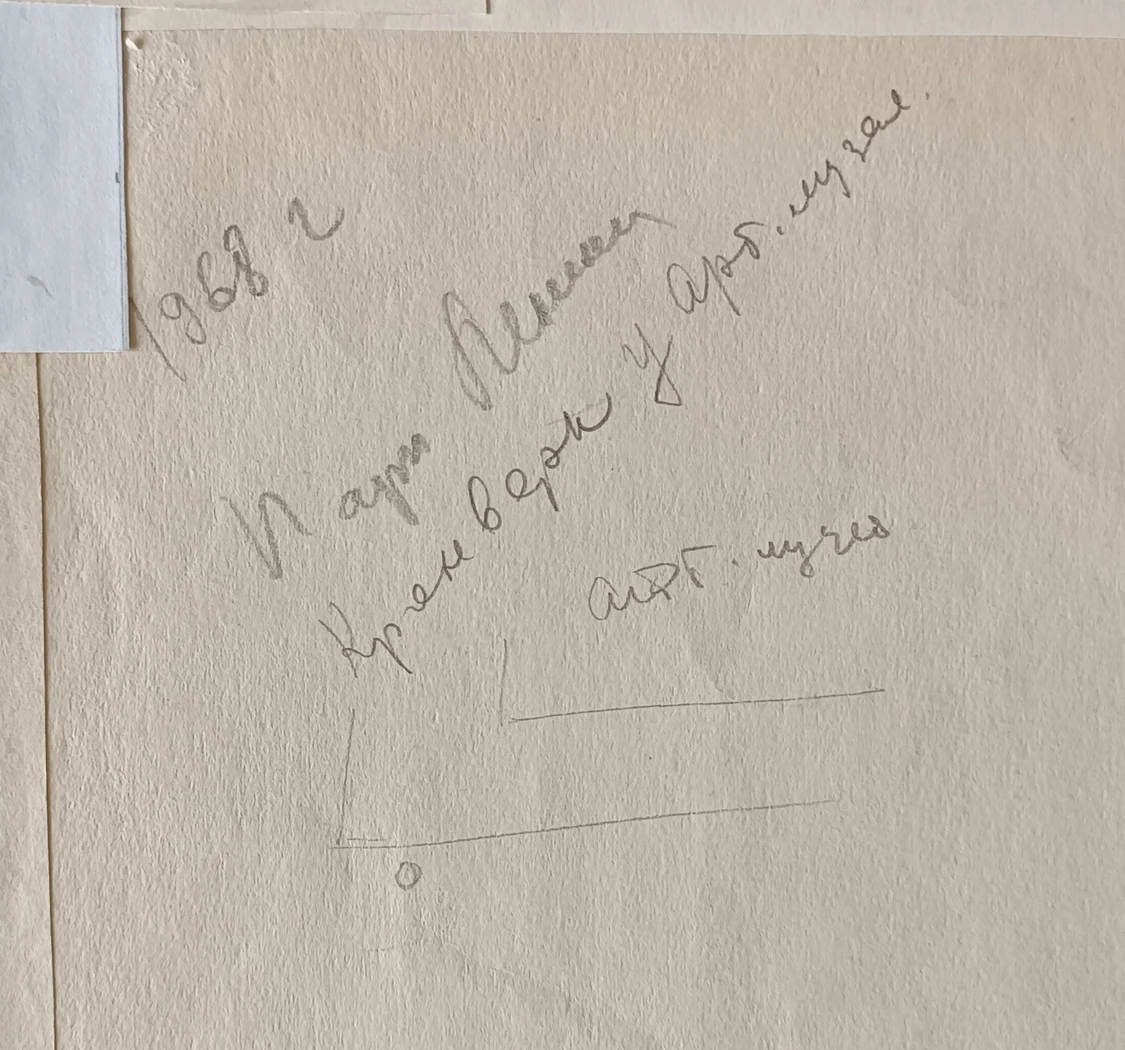 1968 г
Парк Ленина
Кронверк у Арт. музея.
Арт. музей
О